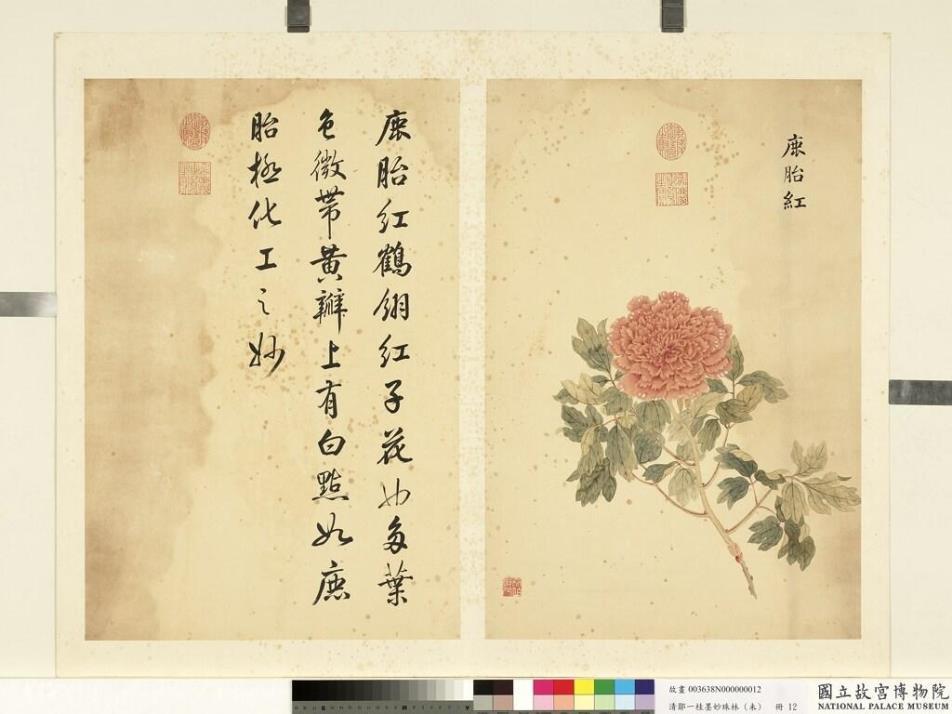 鹿胎紅
鹿胎紅鶴翎紅子花也多葉
色微帶黃瓣上有白點如鹿
胎極化工之妙
故畫 003638N000000012
清鄒一桂墨妙珠林（未） 冊 12
國立故宮博物院
NATIONAL PALACE MUSEUM